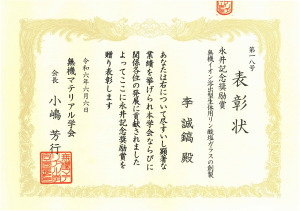 第一八号
表彰状
永井記念奨励賞
無機イオン溶出型生体用リン酸塩ガラスの創製
李 誠鎬 殿
あなたは右について尽すいし顕著な
業績を挙げられ本学会ならびに
関係各位の発展に貢献されました
よってここに永井記念奨励賞を
贈り表彰します
令和六年六月六日
無機マテリアル学会
会長 小嶋 芳行